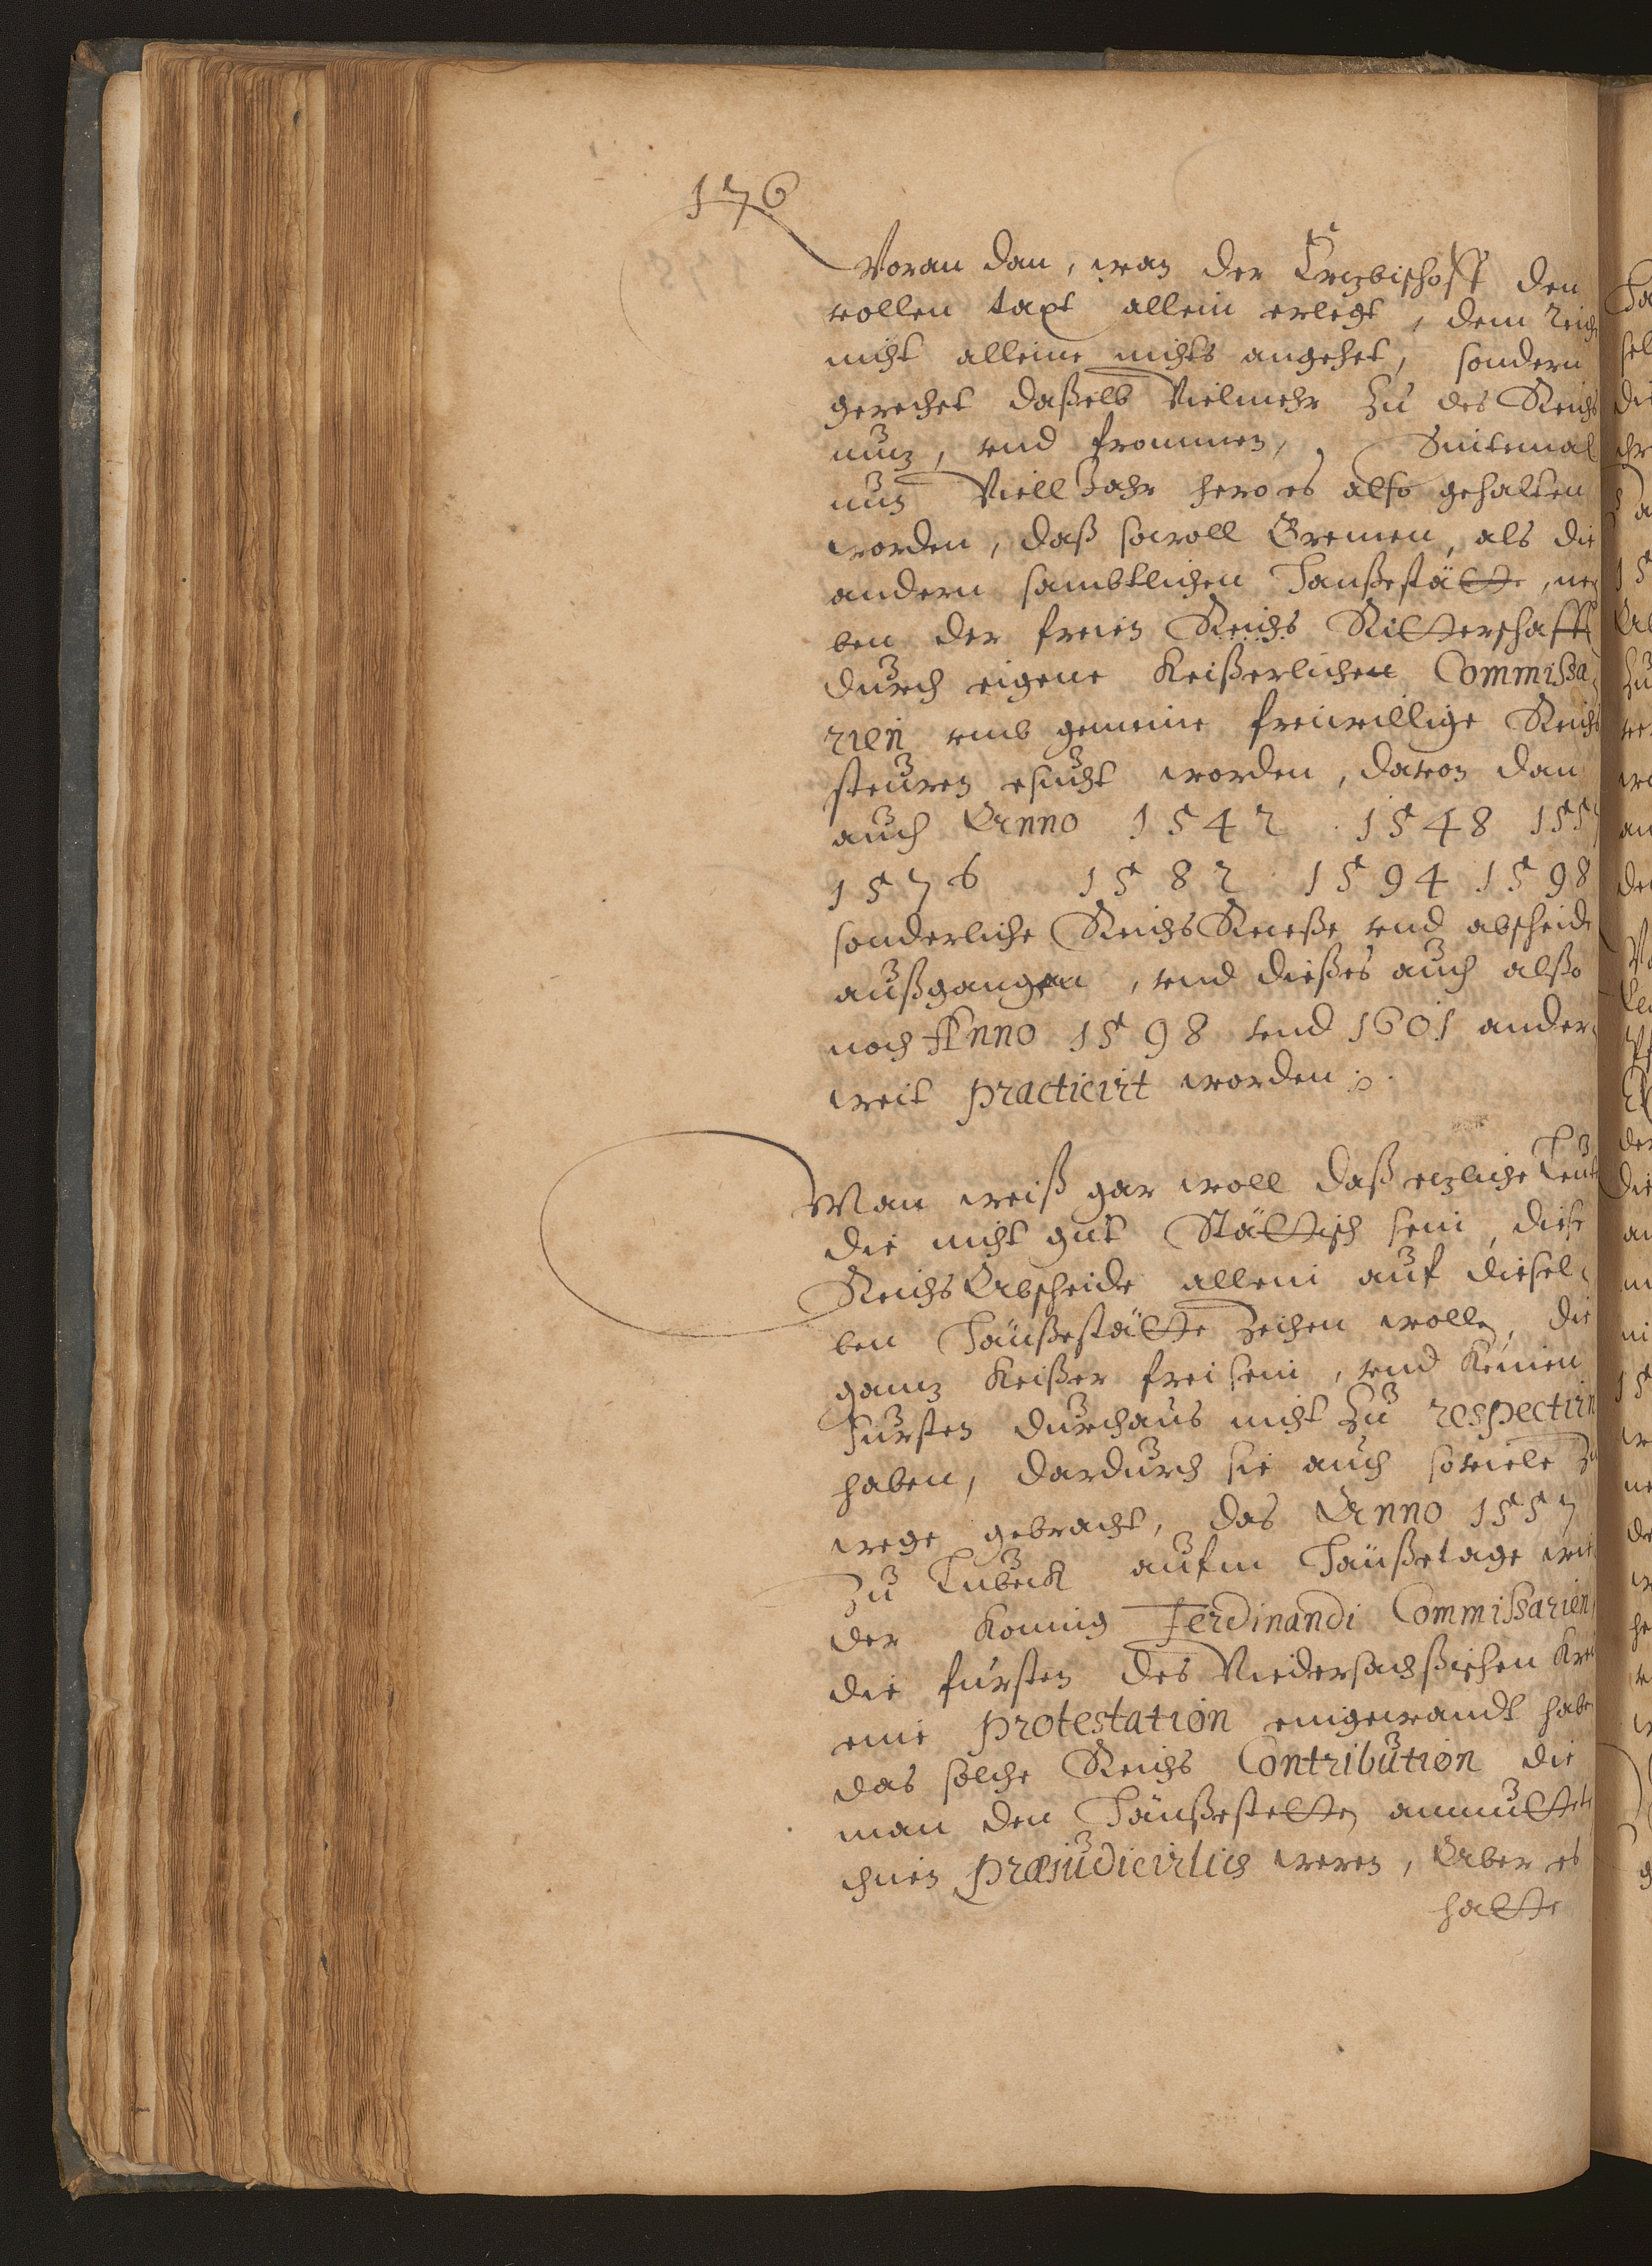 176
Woran dan, wan der Ertzbischoff den
vollen taxt allein erlegt, dem Reich
nicht alleine nichts angehet, sondern
gereichet daßelb Vielmehr Zu des Reichs
nutz, vnd frommen, Sintemal
nun Viell Jahr hero es also gehalten
worden, daß sowoll Bremen, als die
andern sambtlichen Hanßestätte, ne,
ben der freien Reichs Ritterschafft
durch eigene Keißerlichen Commissa,
rien vmb gemeine freiwillige Reichs
steuren esucht worden, davon dan
auch Anno 1542 1548 1557
1576 1582 1594 1598
sonderliche Reichs Receße vnd abscheide
außgangen, vnd dießes auch alßo
noch Anno 1598 vnd 1601 ander,
weit practicirt worden.
Man weiß gar woll daß etzliche Leute
die nicht gut Stättisch sein, diese
Reichs Abscheide allein auf diesel,
ben Hänßestätte Ziehen wollen, die
gantz Keißer frei sein, vnd keinen
Fursten durchaus nicht Zu respectirn
haben, dardurch sie auch soviele Zu
wege gebracht, das Anno 1557
Zu Lubeck aufm Hänßetage wie
der Konnig Ferdinandi Commissarien
die fursten des Niedersachsischen Krei
eine protestation eingewandt habe
das solche Reichs Contribution die
man den Hänßestetten anmuttete
ihnen præjudicirlich weren, Aber es
hatte